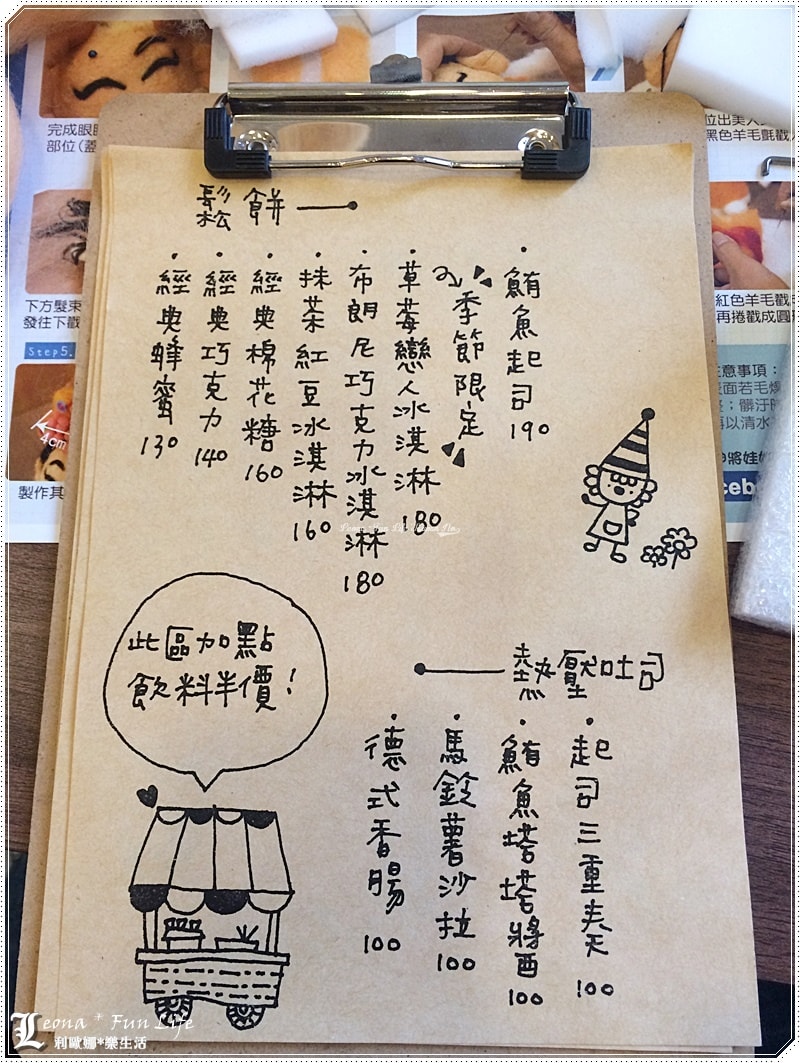 完成眼
部位(蓋
位出美人
黑色羊毛氈戳
下方髮束
發往下戳
Step5.
4cm
製作其
紅色羊毛戳
再捲戳成圓
注意事項:
cebo
鬆餅
經典蜂蜜 130
經典巧克力 140
經典棉花糖 160
抹茶紅豆冰淇淋 160
布朗尼巧克力冰淇淋 180
草莓戀人冰淇淋 180
季節限定
鮪魚起司 190
此區加點
飲料半價!
熱壓吐司
起司三重奏 100
鮪魚塔塔醬 100
馬鈴薯沙拉 100
德式香腸 100
Leona * Fun Life
利歐娜*樂生活